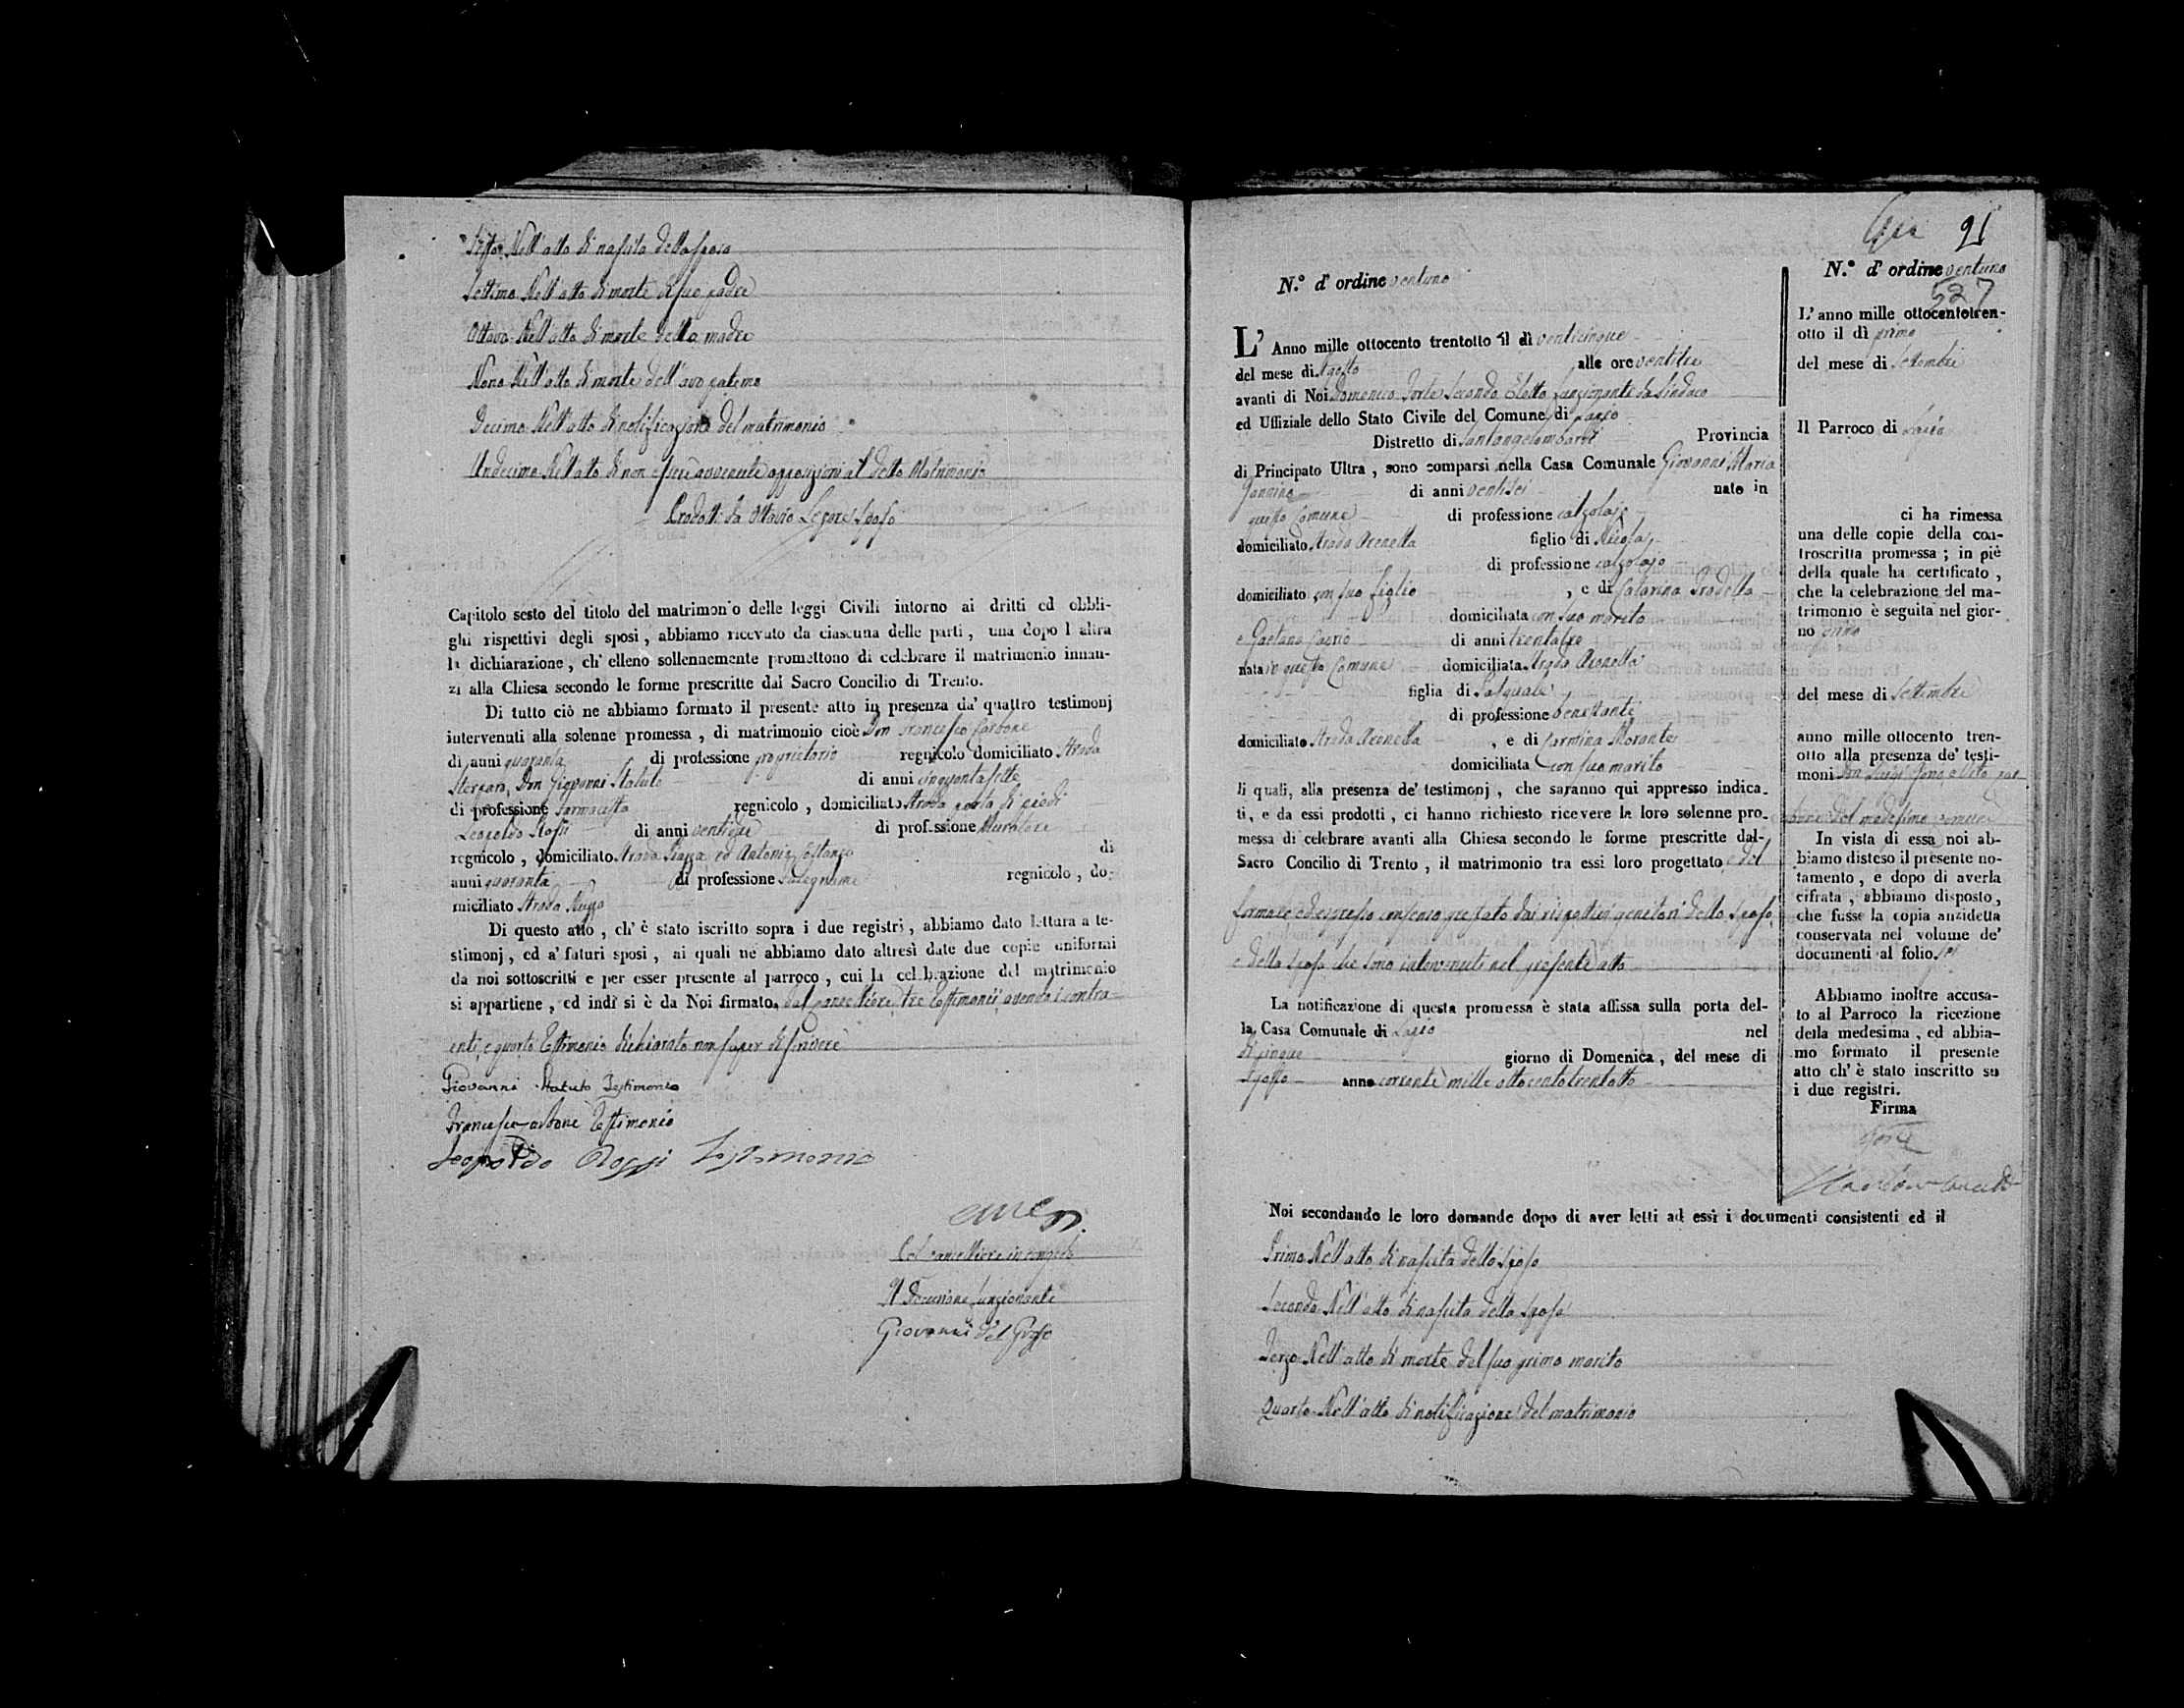 Sesto Nell'atto di nascita della sposa
Settimo Nell'atto di morte di suo padre
Ottavo Nell'atto di morte della madre
Nono Nell'atto di morte dell'avo paterno
Decimo Nell'atto di notificazione del matrimonio
Undecimo Nell'atto di non essere avvenute opposizioni al detto Matrimonio
Prodotti da Ottavio Lepore sposo
Capitolo sesto del titolo del matrimonio delle leggi Civili intorno ai dritti ed obbli-
ghi rispettivi degli sposi, abbiamo ricevuto da ciascuna delle parti, una dopo l altra
la dichiarazione, ch' elleno sollennemente promettono di celebrare il matrimonio innan-
zi alla Chiesa secondo le forme prescritte dal Sacro Concilio di Trento.
Di tutto ciò ne abbiamo formato il presente atto in presenza da' quattro testimonj
intervenuti alla solenne promessa, di matrimonio cioè Don Francesco Carbone
di anni quaranta di professione proprietario regnicolo domiciliato Strada
Don Giovanni Statuto di anni cinquantasette
di professione farmacista regnicolo, domiciliato Strada porta di piedi
Leopoldo Rossi di anni di professione Muratore
regnicolo, domiciliato Strada Piazza ed Antonio Costanzo di
anni quaranta di professione falegname regnicolo, do-
miciliato Strada
Di questo atto, ch' è stato iscritto sopra i due registri, abbiamo dato lettura a te-
stimonj, ed a' futuri sposi, ai quali ne abbiamo dato altresì date due copie uniformi
da noi sottoscritti e per esser presente al parroco, cui la celebrazione del matrimonio
si appartiene, ed indi si è da Noi firmato, dal cancelliere, tre testimonii, avendo i contra-
enti, e quarto testimonio dichiarato non saper scrivere
Giovanni Statuto Testimonio
Francesco Carbone Testimonio
Leopoldo Rossi Testimonio
Pel cancelliere in congedo
Il Decurione funzionante
Giovanni Del Guzzo
91
N.° d' ordine ventuno
L' Anno mille ottocento trentotto il dì venticinque
del mese di Agosto alle ore ventitre
avanti di Noi Domenico Forte Secondo Eletto funzionante da Sindaco
ed Uffiziale dello Stato Civile del Comune di
Distretto di Santangelo Lombardi Provincia
di Principato Ultra, sono comparsi nella Casa Comunale Giovanni Maria
Jannino di anni ventisei nato in
questo Comune di professione calzolajo
domiciliato Strada Arenella figlio di Nicola
di professione calzolajo
domiciliato con suo figlio, e di Catarina
domiciliata con suo marito
e Gaetana di anni trentatre
nata in questo Comune domiciliata Strada Arenella
figlia di Pasquale
di professione benestante
domiciliato Strada Arenella, e di Carmina Morante
domiciliata con suo marito
li quali, alla presenza de' testimonj, che saranno qui appresso indica-
ti, e da essi prodotti, ci hanno richiesto ricevere la loro solenne pro-
messa di celebrare avanti alla Chiesa secondo le forme prescritte dal-
Sacro Concilio di Trento, il matrimonio tra essi loro progettato, e del
formale ed espresso consenso prestato dai rispettivi genitori dello sposo,
e della sposa che sono intervenuti nel presente atto
La notificazione di questa promessa è stata affissa sulla porta del-
la Casa Comunale di nel
dì cinque giorno di Domenica, del mese di
Agosto anno corrente mille ottocento trentotto
N.° d' ordine ventuno
527
L' anno mille ottocentotren-
otto il dì primo
del mese di Settembre
Il Parroco di
ci ha rimessa
una delle copie della con-
troscritta promessa; in piè
della quale ha certificato,
che la celebrazione del ma-
trimonio è seguita nel gior-
no primo
del mese di Settembre
anno mille ottocento tren-
otto alla presenza de' testi-
moni Don Luigi
del medesimo comune
In vista di essa noi ab-
biamo disteso il presente no-
tamento, e dopo di averla
cifrata, abbiamo disposto,
che fusse la copia anzidetta
conservata nel volume de'
documenti al folio sei
Abbiamo inoltre accusa-
to al Parroco la ricezione
della medesima, ed abbia-
mo formato il presente
atto ch' è stato inscritto su
i due registri.
Firma
Forte
Noi secondando le loro domande dopo di aver letti ad essi i documenti consistenti ed il
Primo Nell'atto di nascita dello sposo
Secondo Nell'atto di nascita della sposa
Terzo Nell'atto di morte del suo primo marito
Quarto Nell'atto di notificazione del matrimonio